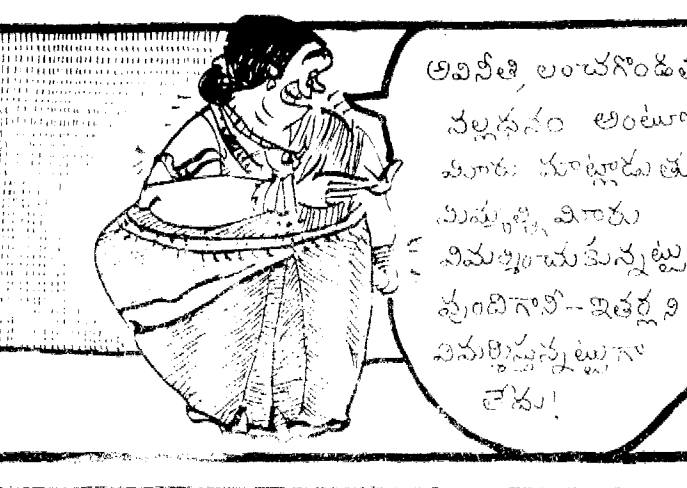 అవినీతి, లంచగొండత
నల్లధనం అంటూ
మీరు మాట్లాడుతు
మిమ్మల్ని మీరు
విమర్శించుకున్నట్టు
వుందిగానీ - ఇతర్లని
విమర్శిస్తున్నట్టుగా
లేదు!